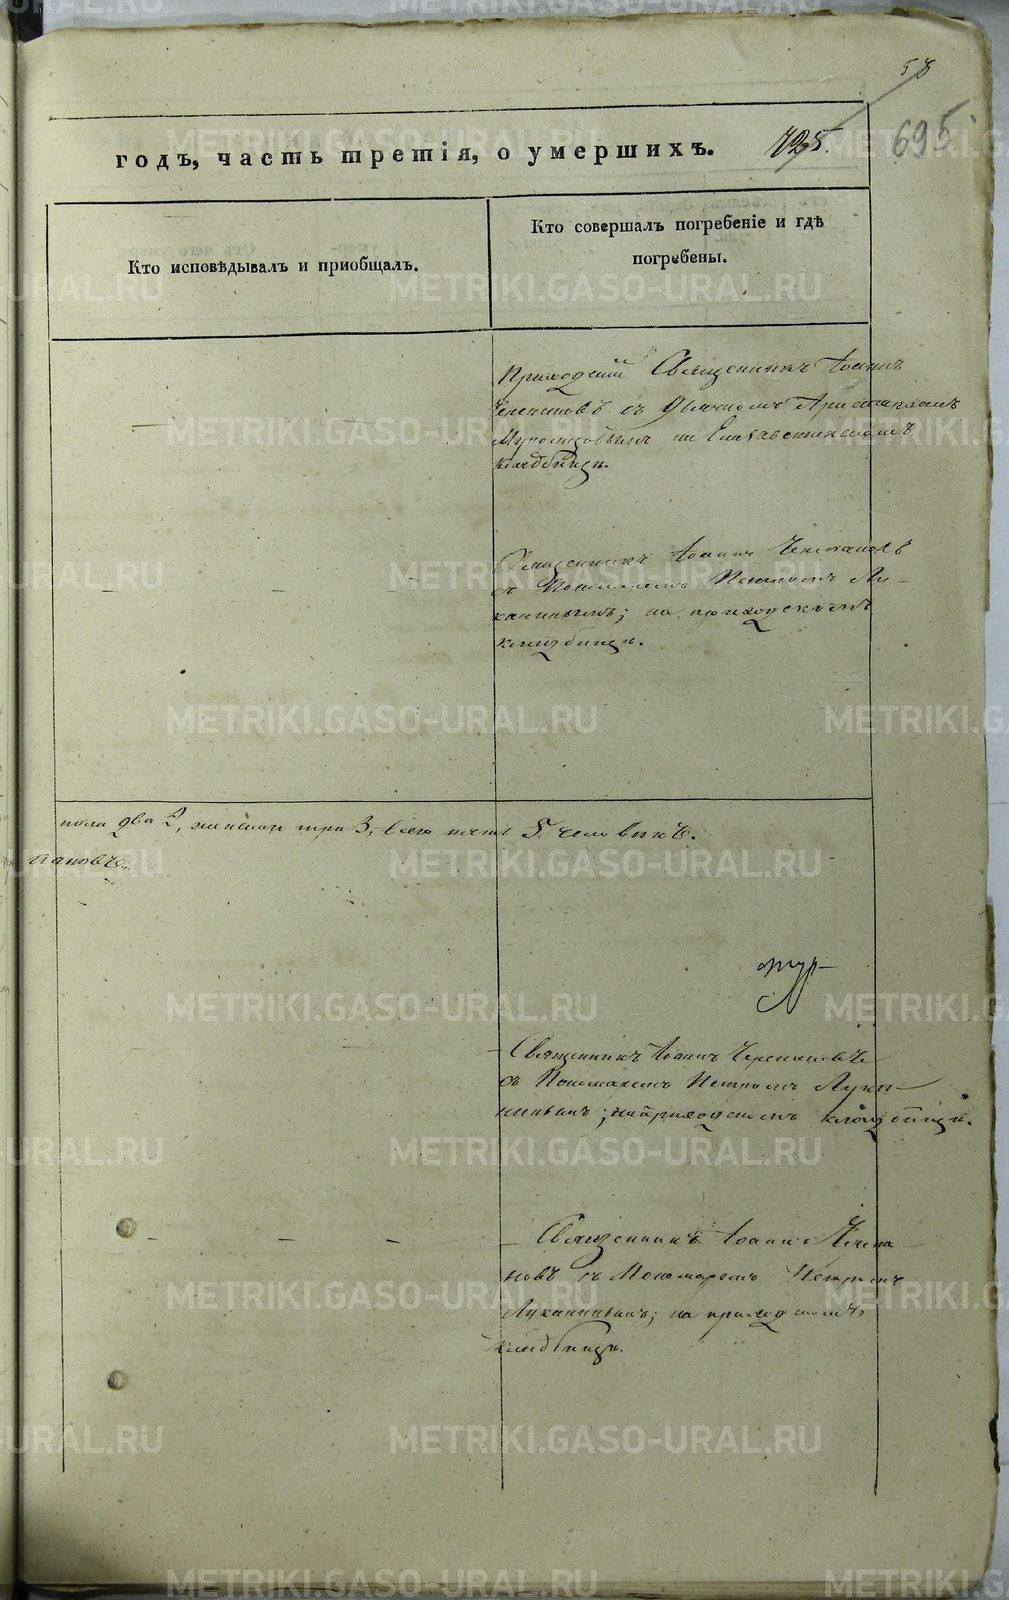 58
годъ, часть третія, о умершихъ.
695
Кто исповѣдывалъ и приобщалъ.
Кто совершалъ погребеніе и гдѣ
погребены.
Приходскій Священникъ Іоаннъ
Черепановъ съ Дьячкомъ
на Елисаветинскомъ
кладбищѣ.
Священникъ Іоаннъ Черепановъ
съ Пономаремъ Петромъ Лу-
канинымъ; на приходскомъ
кладбищѣ.
пола два 2, женскаго три 3, всего пять 5 человѣкъ.
пановъ
Священникъ Іоаннъ Черепановъ
съ Пономаремъ Петромъ Лука-
нинымъ; на приходскомъ кладбищѣ.
Священникъ Іоаннъ Черепа
новъ съ Пономаремъ Петромъ
Луканинымъ; на приходскомъ
кладбищѣ.
METRIKI.GASO-URAL.RU